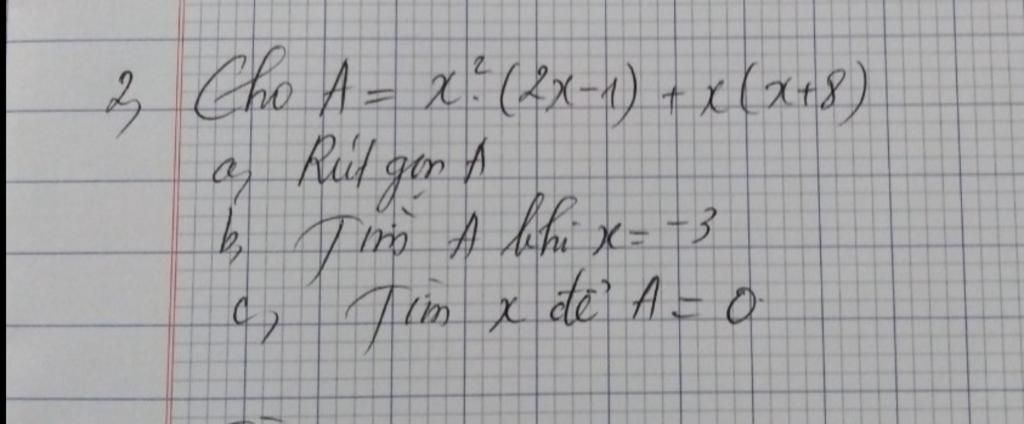 2, Cho A = x².(2x-1) + x(x+8)
a, Rút gọn A
b, Tìm A khi x = -3
c, Tìm x để A = 0